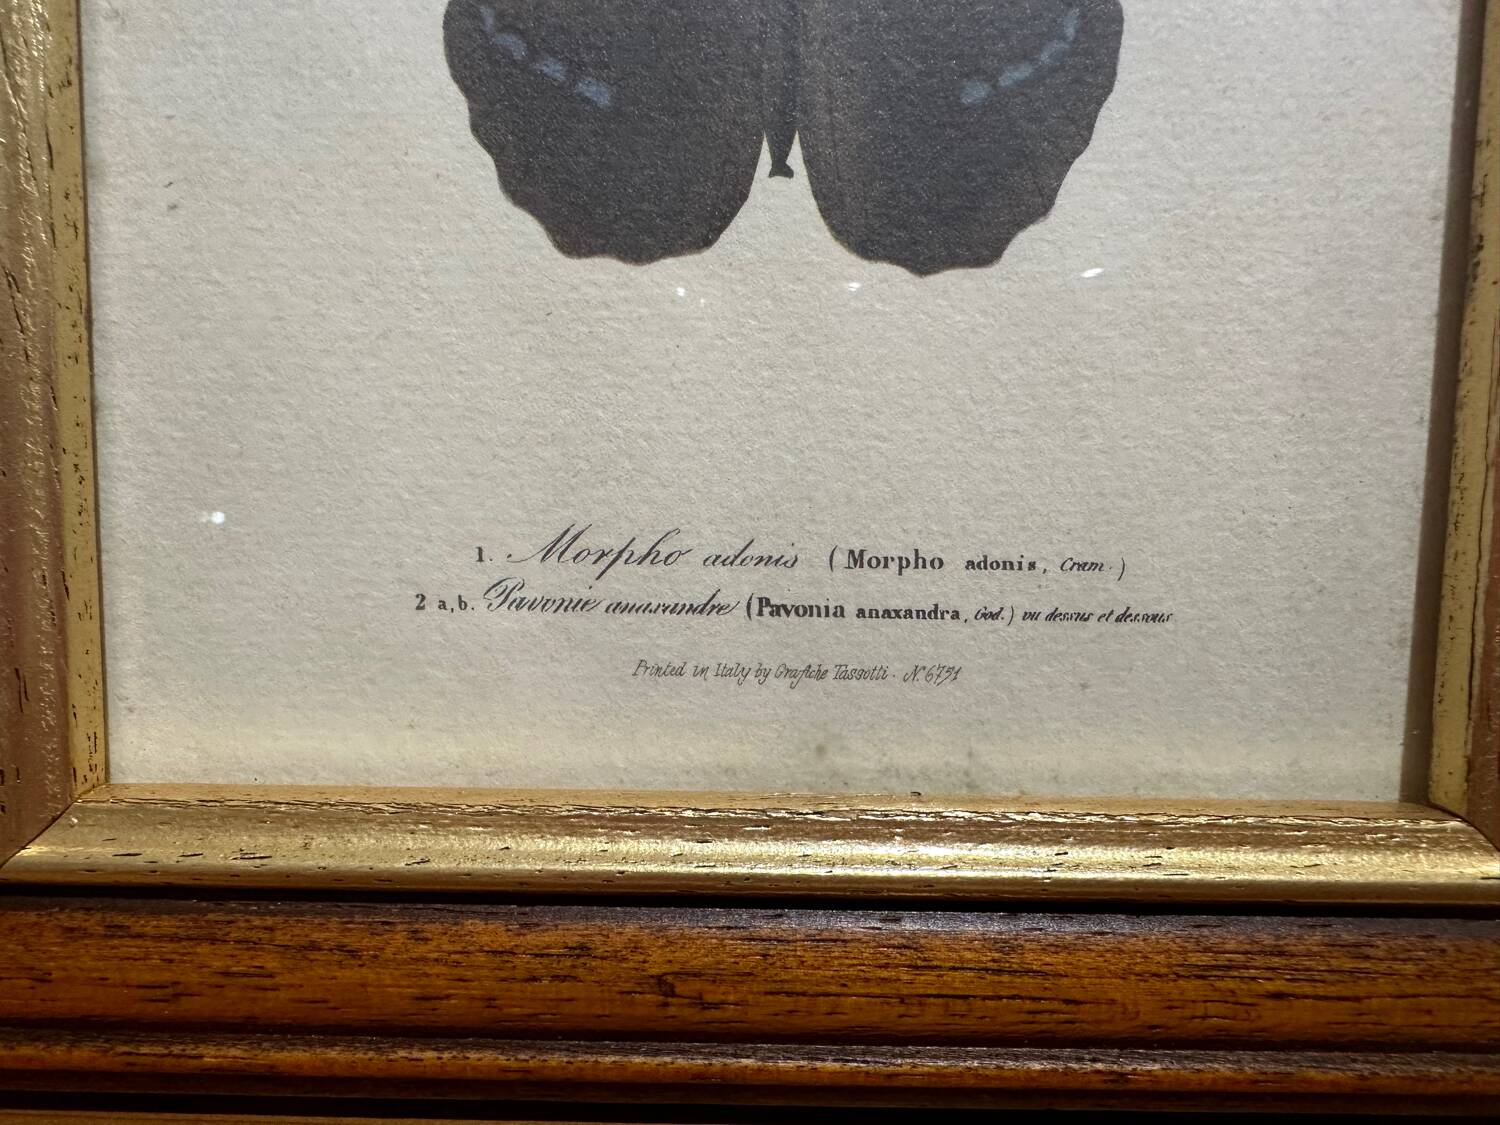 1. Morpho adonis (Morpho adonis, Cram.)
2 a,b. Pavonie anaxandre (Pavonia anaxandra, God.) vu dessus et dessous
Printed in Italy by Grafiche Tassotti - N. 6751